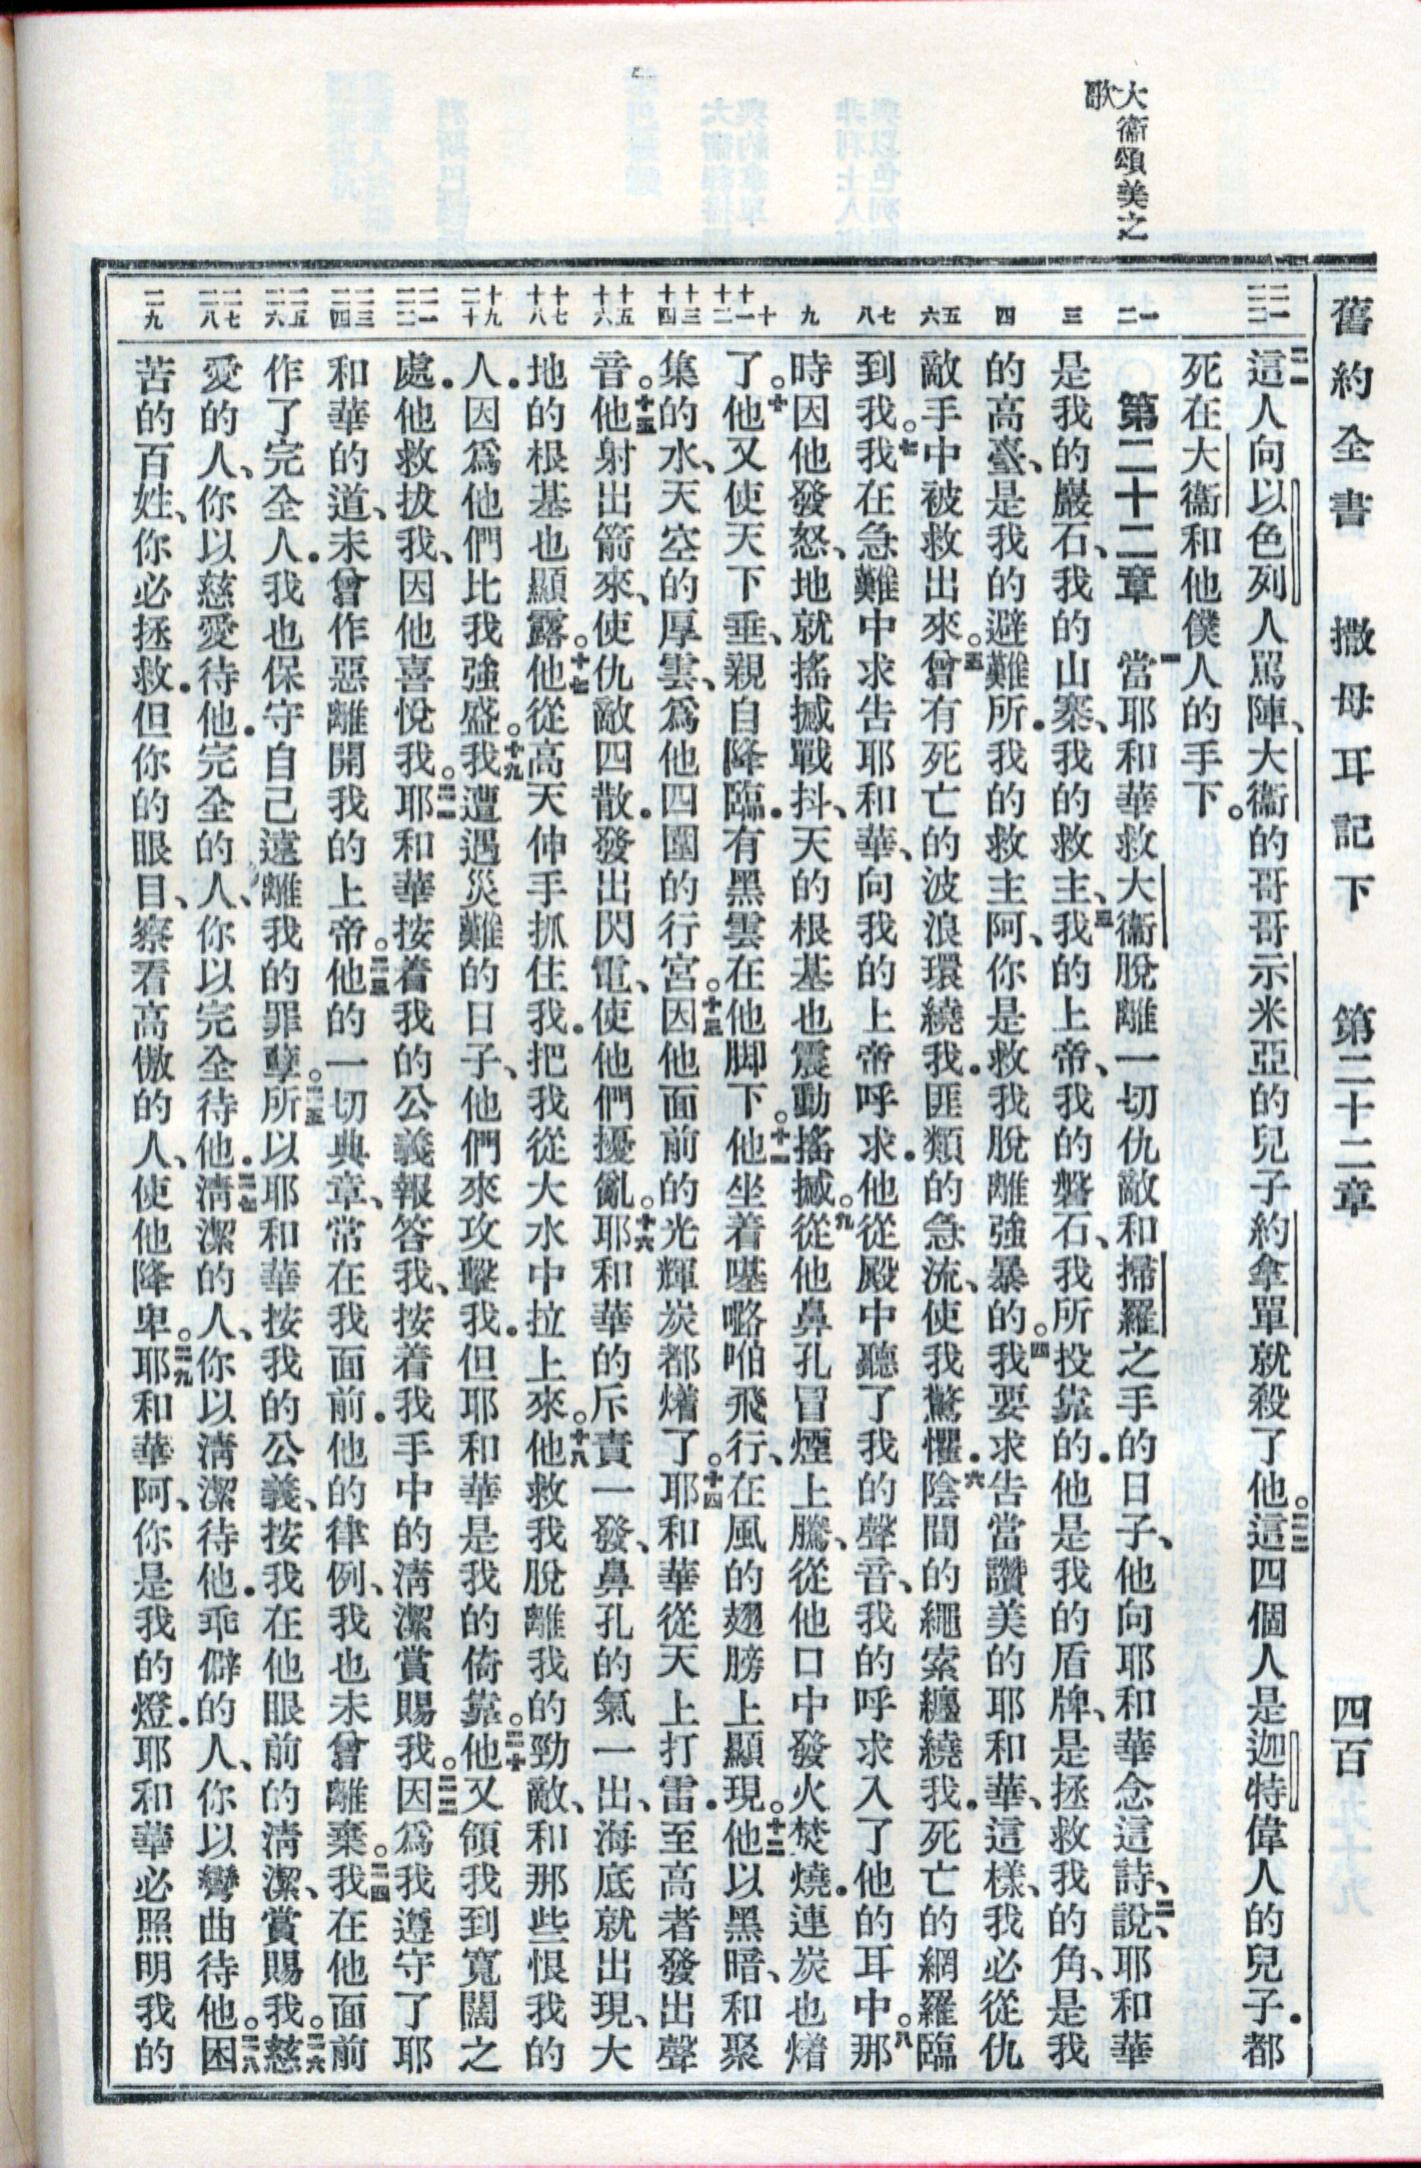 舊約全書 撒母耳記下 第二十二章 四百
大衞頌美之
歌
二一 二二
一 二
三
四
五 六
七 八
九
十 十一 十二
十三 十四
十五 十六
十七 十八
十九 二十
二一 二二
二三 二四
二五 二六
二七 二八
二九
二一這人向以色列人罵陣、大衞的哥哥示米亞的兒子約拿單就殺了他。二二這四個人是迦特偉人的兒子．都
死在大衞和他僕人的手下。
第二十二章 一當耶和華救大衞脫離一切仇敵和掃羅之手的日子、他向耶和華念這詩、二說、耶和華
是我的巖石、我的山寨、我的救主、三我的上帝、我的磐石、我所投靠的．他是我的盾牌、是拯救我的角、是我
的高臺、是我的避難所．我的救主阿、你是救我脫離強暴的。四我要求告當讚美的耶和華、這樣、我必從仇
敵手中被救出來。五曾有死亡的波浪環繞我．匪類的急流、使我驚懼．六陰間的繩索纏繞我．死亡的網羅臨
到我。七我在急難中求告耶和華、向我的上帝呼求．他從殿中聽了我的聲音、我的呼求入了他的耳中。八那
時因他發怒、地就搖撼戰抖、天的根基也震動搖撼。九從他鼻孔冒煙上騰、從他口中發火焚燒．連炭也㸌
了。十他又使天下垂、親自降臨．有黑雲在他脚下。十一他坐着𠼻㗉啪飛行、在風的翅膀上顯現。十二他以黑暗、和聚
集的水、天空的厚雲、爲他四圍的行宮。十三因他面前的光輝炭都㸌了。十四耶和華從天上打雷．至高者發出聲
音。十五他射出箭來、使仇敵四散．發出閃電、使他們擾亂。十六耶和華的斥責一發、鼻孔的氣一出、海底就出現、大
地的根基也顯露。十七他從高天伸手抓住我．把我從大水中拉上來。十八他救我脫離我的勁敵、和那些恨我的
人．因爲他們比我強盛。十九我遭遇災難的日子、他們來攻擊我．但耶和華是我的倚靠。二十他又領我到寬闊之
處．他救拔我、因他喜悅我。二一耶和華按着我的公義報答我、按着我手中的清潔賞賜我。二二因爲我遵守了耶
和華的道、未曾作惡離開我的上帝。二三他的一切典章、常在我面前．他的律例、我也未曾離棄。二四我在他面前
作了完全人．我也保守自己遠離我的罪孽。二五所以耶和華按我的公義、按我在他眼前的清潔、賞賜我。二六慈
愛的人、你以慈愛待他．完全的人、你以完全待他．二七清潔的人、你以清潔待他．乖僻的人、你以彎曲待他。二八困
苦的百姓、你必拯救．但你的眼目、察看高傲的人、使他降卑。二九耶和華阿、你是我的燈．耶和華必照明我的